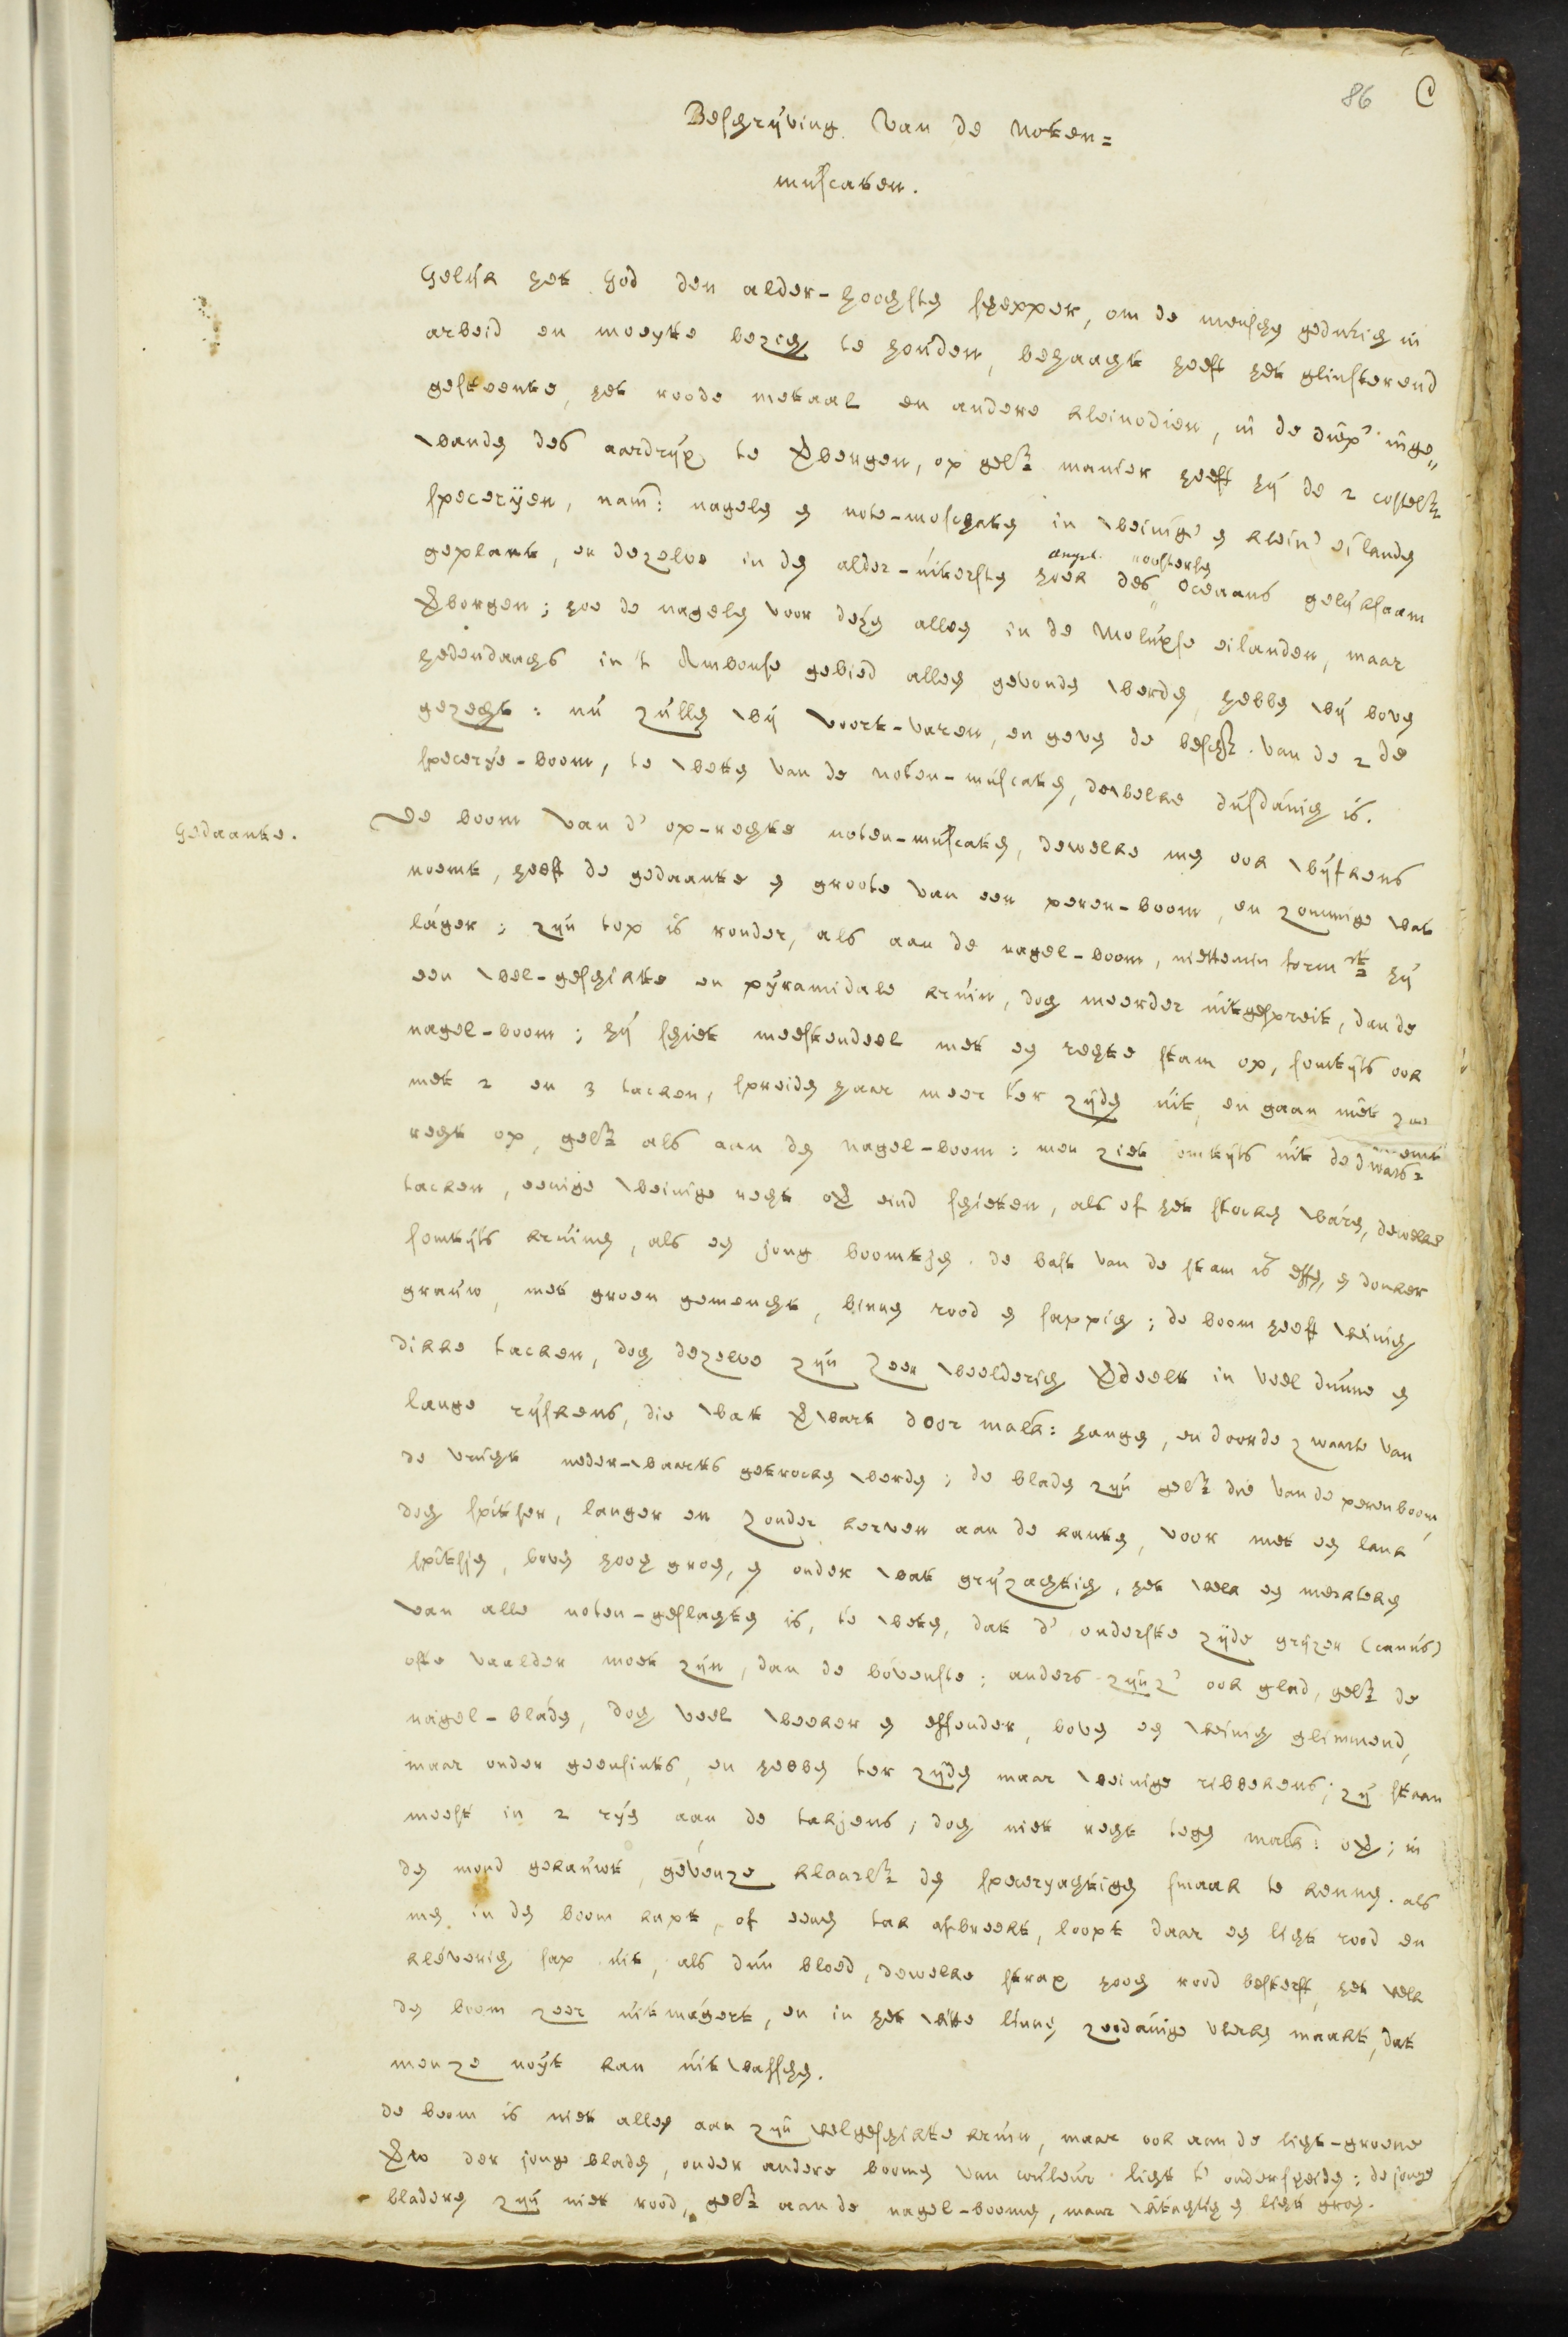 86 C
Beschrijving van de Noten=
muscaten.
Gelijk het God den alder-hoochsten schepper, om de menschen gedurich in
arbeid en moeyte bezich te houden, behaacht heeft het glinsterend
gesteente, het roode metaal en andere kleinodien, in de diepe inge„
wanden des aardrijx te verbergen, op gelijke manier heeft hij de 2 costelijke
specerijen, nam: nagelen en note-moschaten in weinige en kleine eilanden
geplant, en dezelve in den alder-uitersten hoek des oosterschen Oceaans gelijksaam
verborgen; hoe de nagelen voor dezen alleen in de Moluxse eilanden, maar
hedendaachs in 't Ambonse gebied alleen gevonden werden, hebben wij boven
gezecht: nu zullen wij voort-varen, en geven de beschr. van de 2de
specerije-boom, te weten van de noten-muscaten, dewelke dusdanich is.
Gedaante.
De boom van d' op-rechte noten-muscaten, dewelke men ook wijfkens
noemt, heeft de gedaante en groote van een peren-boom, en zommige wat
lager; zijn top is ronder, als aan de nagel-boom, niettemin formeert hij
een wel-geschikte en pyramidale kruin, doch meerder uitgespreit, dan de
nagel-boom; hij schiet meestendeel met een rechte stam op, somtijts ook
met 2 en 3 tacken, spreiden haar meer ter zijden uit, en gaan niet zoo
recht op, gelijk als aan den nagel-boom: men ziet somtijts uit de dwars
tacken, eenige weinige recht over eind schieten, als of het stocken waren, dewelke
somtijts kruinen, als een jong boomtjen. de bast van de stam is effen, en donker
grauw, met groen gemengt, binnen rood en sappich; de boom heeft weinich
dikke tacken, doch dezelve zijn zeer weelderich verdeelt in veel dunne en
lange rijskens, die wat verwart door malk: hangen, en door de zwaarte van
de vrucht neder-waarts getrocken werden; de bladen zijn gelijk die van de perenboom,
doch spitser, langer en zonder kerven aan de kanten, voor met een lank
spitsjen, boven hooch groen, en onder wat grijzachtich, het welk een merkteken
van alle noten-geslachten is, te weten, dat d' onderste zijde grijzer (canus)
ofte vaalder moet zijn, dan de bovenste; anders zijn z' ook glad, gelijk de
nagel-bladen, doch veel weeker en effender, boven een weinich glimmend,
maar onder geensints, en hebben ter zijden maar weinige ribbekens; zij staan
meest in 2 rijen aan de takjens, doch niet recht tegen malk: over; in
den mond gekauwt, geven ze klaarlijk den speceryachtigen smaak te kennen. als
men in den boom kapt, of eenen tak afbreekt, loopt daar een licht rood en
kleverich sap uit, als dun bloed, dewelke strax hooch rood besterft, het welk
den boom zeer uitmagert, en in het witte linnen zoodanige vlecken maakt, dat
men ze noyt kan uitwasschen.
de boom is niet alleen aan zijn welgeschikte kruin, maar ook aan de licht-groene
verw der jonge bladen, onder andere boomen van couleur licht t' onderscheiden; de jonge
bladeren zijn niet rood, gelijk aan de nagel-boomen, maar witachtich en licht groen.